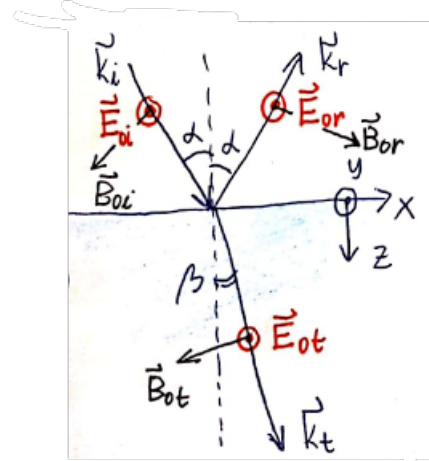 k⃗i
k⃗r
E⃗oi
α
α
E⃗or
B⃗or
B⃗oi
y
x
z
β
E⃗ot
B⃗ot
k⃗t